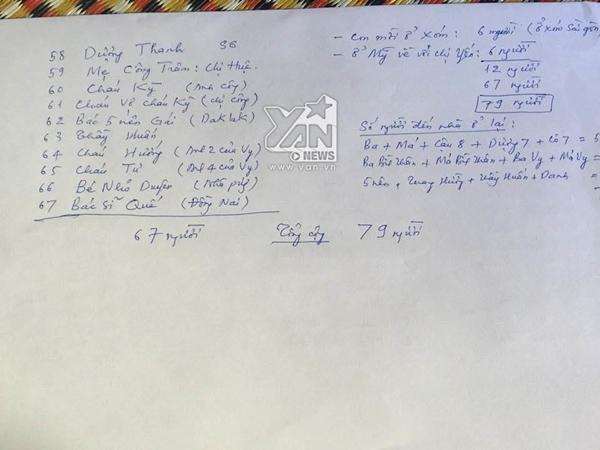 58 Dượng Thanh SG
59 Mẹ Công Trâm: Chị Huệ.
60 Cháu Kỳ (Anh cây)
61 Cháu Vợ cháu Kỳ (chị cây)
62 Bác 5 nên Gái (Dak Lak)
63 Thầy Huấn
64 Cháu Hương (Anh 2 của Vy)
65 Cháu Tư (Anh 4 của Vy)
66 Bé Nhỏ Duyên
67 Bác Sĩ Quế (Đồng Nai)
67 người Tổng cộng 79 người
- Con mời ở Xóm: 6 người (ở xóm Sài gòn
- ở Mỹ về với chị Yến: 6 người
12 người
67 người
79 người
Số người đến nhà ở lại:
Ba + Má + Cậu 8 + Dượng 7 + Cô 7 = 5
+ Ba Vy + Má Vy =
5 nên + Quay Hường + Thầy Huấn + Danh =
YAN
NEWS
www.yan.vn